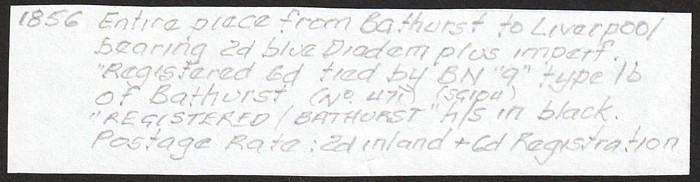 1856 Entire piece from Bathurst to Liverpool
bearing 2d blue Diadem plus imperf.
"Registered 6d tied by BN "9" type 1b
of Bathurst (No. 471) (SG104)
"REGISTERED / BATHURST" h/s in black.
Postage Rate: 2d inland + 6d Registration